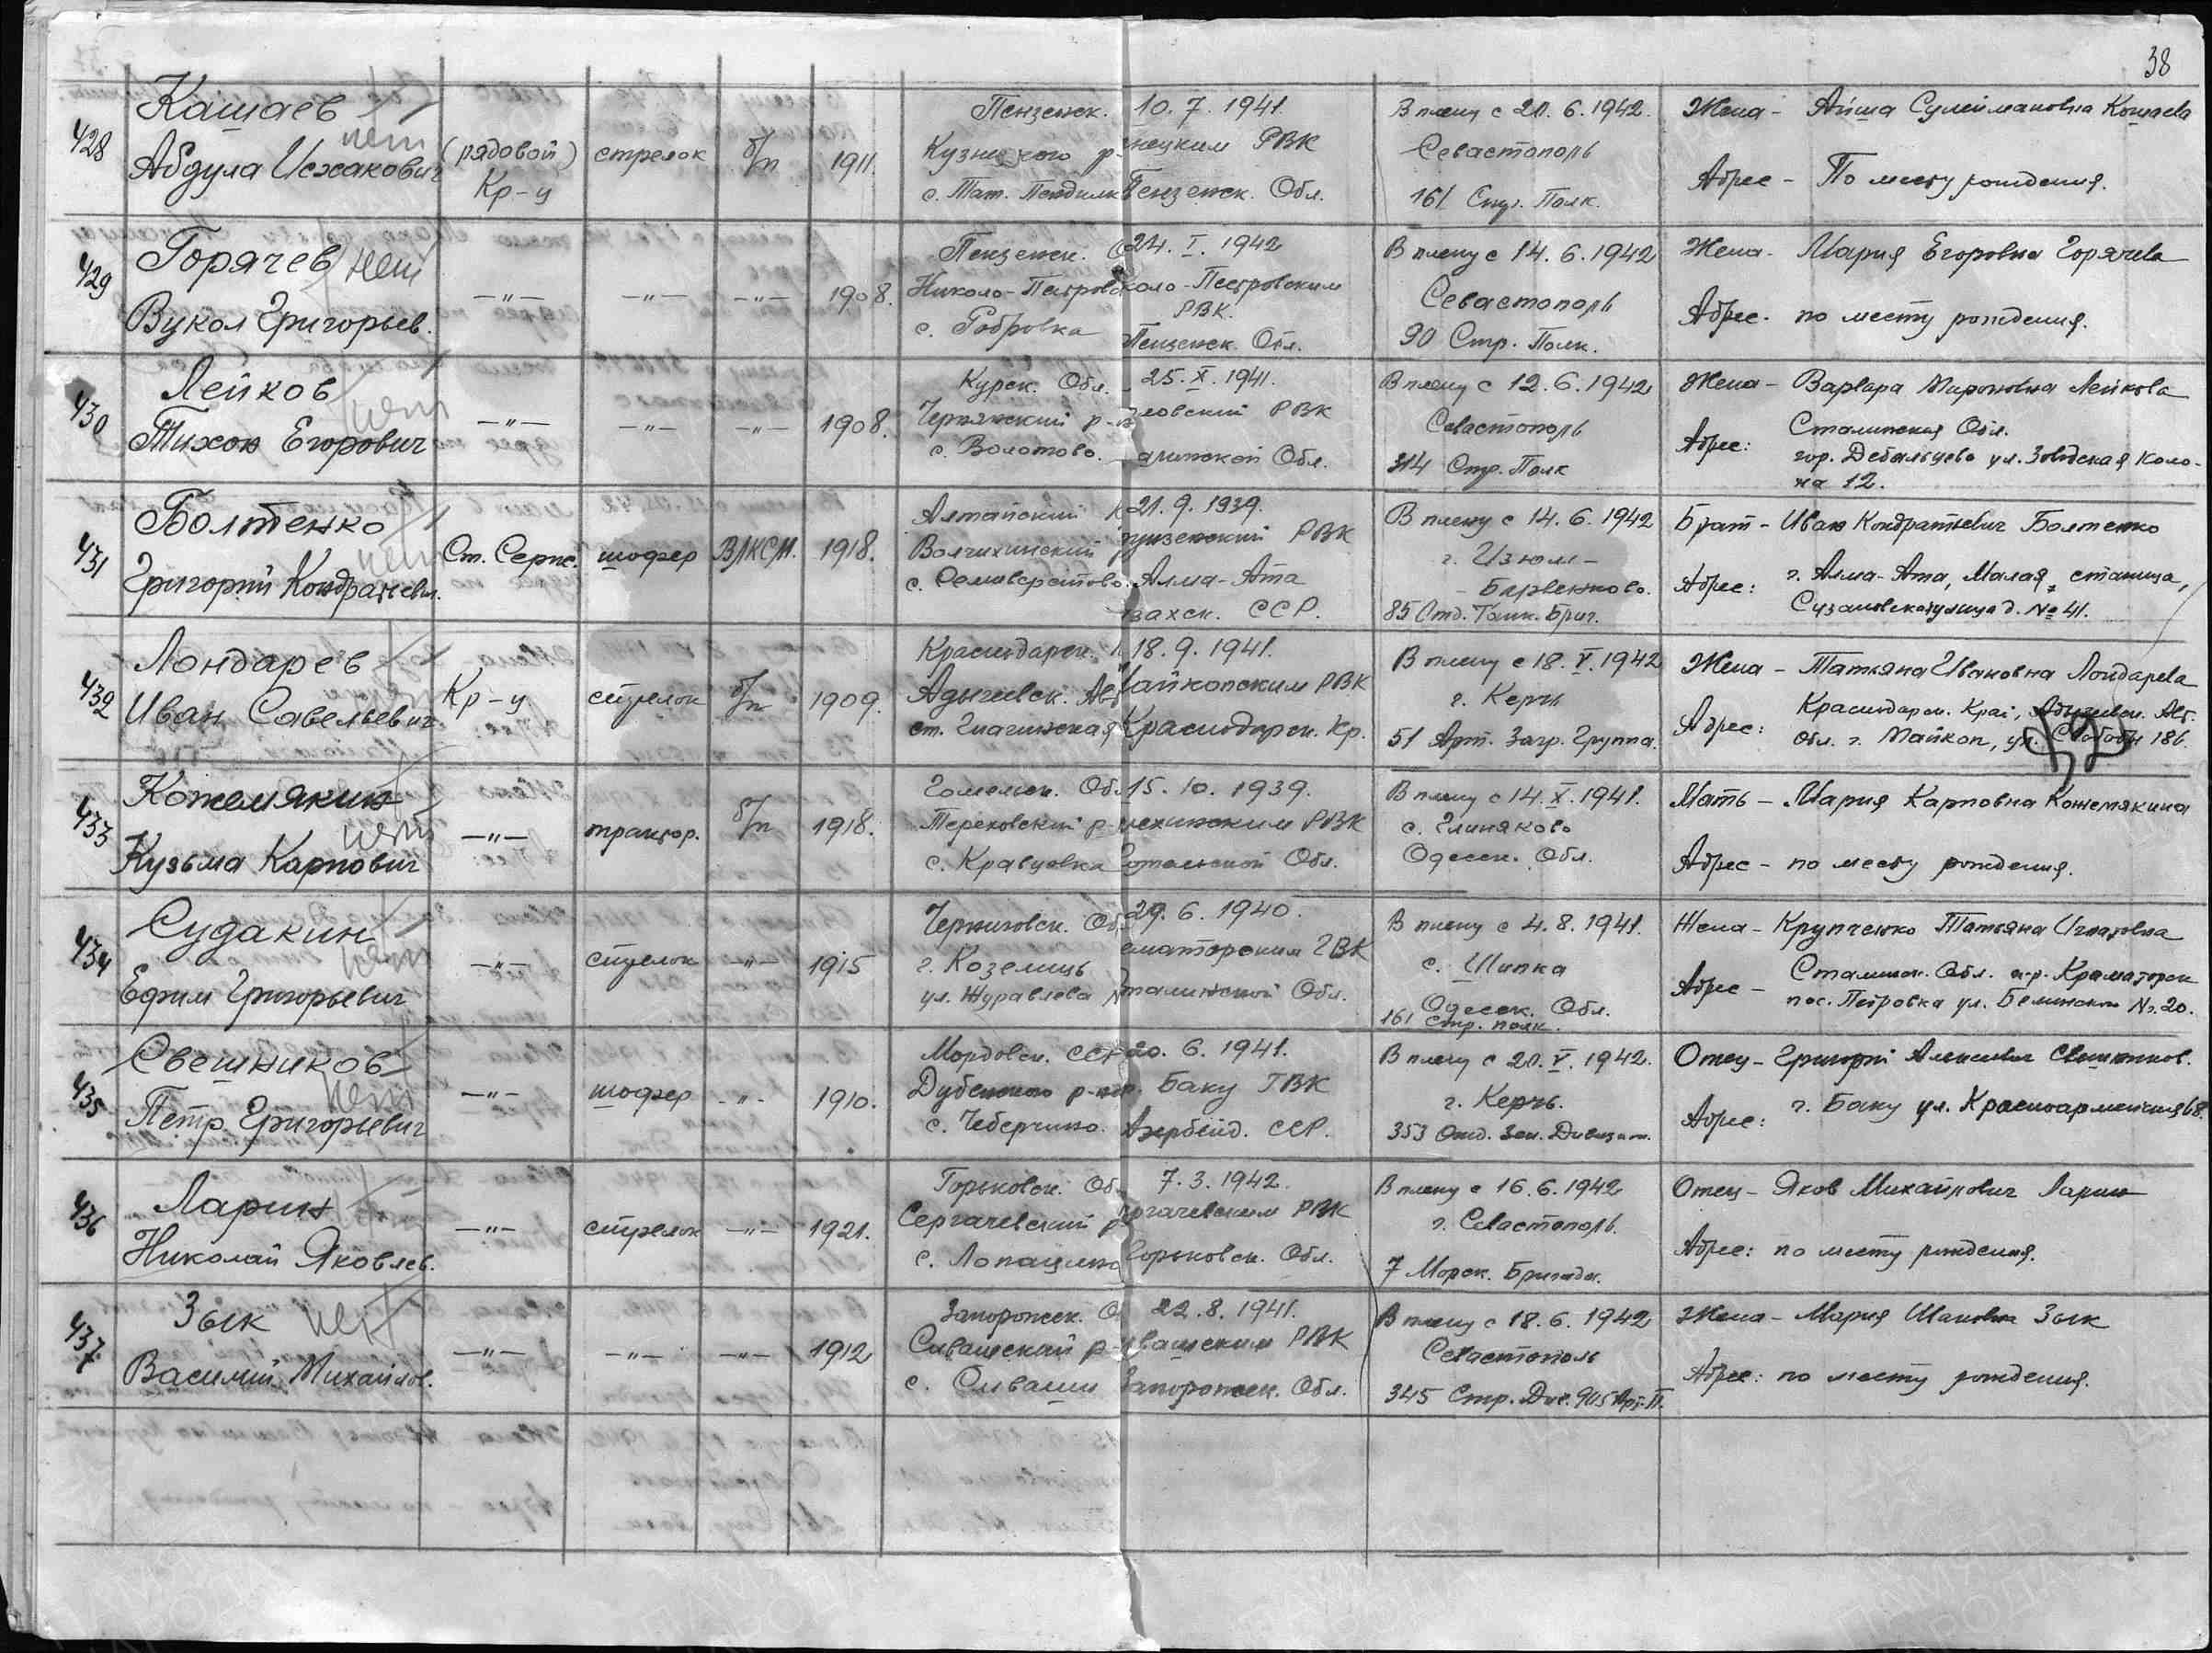 38
428
Кашаев
нет
Абдула Исхакович
(рядовой)
Кр-ц
стрелок
б/п
1911.
Пензенск.
Кузнецкого р-
с. Тат. Пенделк
10. 7. 1941.
нецким РВК
Пензенск. Обл.
В плену с 20. 6. 1942.
Севастополь
161 Стр. Полк.
Жена - Айша Сулеймановна Кашаева
Адрес - По месту рождения.
429
Горячев нет
Вукол Григорьев.
—"—
—"—
—"—
1908.
Пензенск. О
Николо-Пестров
с. Бобровка
24. I. 1942
коло-Пестровским
РВК.
Пензенск. Обл.
В плену с 14. 6. 1942
Севастополь
90 Стр. Полк.
Жена - Мария Егоровна Горячева
Адрес. по месту рождения.
430
Лейков
нет
Тихон Егорович
—"—
—"—
—"—
1908.
Курск. Обл.
Чернянский р-н
с. Волотово.
25. X. 1941.
ловский РВК
алинской Обл.
В плену с 12. 6. 1942
Севастополь
314 Стр. Полк
Жена - Варвара Мироновна Лейкова
Адрес: Сталинская Обл.
гор. Дебальцево ул. Заводская Коло-
на 12.
431
Болтенко
нет
Григорий Кондратьевич.
Ст. Серж.
шофер
ВЛКСМ.
1918.
Алтайский к
Волчихинский
с. Селиверстово.
21. 9. 1939.
унзенский РВК
Алма-Ата
захск. ССР.
В плену с 14. 6. 1942
г. Изюм -
- Барвенково.
85 Отд. Танк. Бриг.
Брат - Иван Кондратьевич Болтенко
Адрес: г. Алма-Ата, Малая станица,
улица д. № 41.
432
Лондарев
Иван Савельевич
Кр-ц
стрелок
б/п
1909.
Краснодарск. К
Адыгейск. Авт
ст. Гиагинская
18. 9. 1941.
Майкопским РВК
Краснодарск. Кр.
В плену с 18. V. 1942
г. Керчь
51 Арт. Загр. Группа.
Жена - Татьяна Ивановна Лондарева
Адрес: Краснодарск. Край, Адыгейск. Авт.
Обл. г. Майкоп, ул. Свободы 186.
433
Кожемякин
нет
Кузьма Карпович
—"—
трактор.
б/п
1918.
Гомельск. Об
Тереховский р-
с. Кравцовка
15. 10. 1939.
РВК
Гомельской Обл.
В плену с 14. X. 1941.
с. Глиняково
Одесск. Обл.
Мать - Мария Карповна Кожемякина
Адрес - по месту рождения.
434
Судакин
нет
Ефим Григорьевич
—"—
стрелок
—"—
1915
Черниговск. Об
г. Козелець
ул. Журавлева
29. 6. 1940.
аматорским ГВК
Сталинской Обл.
В плену с 4. 8. 1941.
с. Шипка
Одесск. Обл.
161 стр. полк.
Жена - Крупченко Татьяна Игнатовна
Адрес - Сталинск. Обл. г-р. Краматорск
пос. Петровка ул. № 20.
435
Свешников
нет
Петр Григорьевич
—"—
шофер
-"-
1910.
Мордовск. ССР
Дубенского р-н
с. Чеберчино.
20. 6. 1941.
гор. Баку ГВК
Азербейд. ССР.
В плену с 20. V. 1942.
г. Керчь.
353 Отд. Зен. Дивизион.
Отец - Григорий Алексеевич Свешников.
Адрес: г. Баку ул. Красноармейская 68.
436
Ларин
Николай Яковлев.
—"—
стрелок
—"—
1921.
Горьковск. Об
Сергачевский р
с. Лопатино
7. 3. 1942.
ргачевским РВК
Горьковск. Обл.
В плену с 16. 6. 1942
г. Севастополь.
7 Морск. Бригада.
Отец - Яков Михайлович Ларин
Адрес: по месту рождения.
437
Зык нет
Василий Михайлов.
—"—
—"—
—"—
1912
Запорожск. О
Сивашский р-
с. Сиваши
22. 8. 1941.
ивашским РВК
Запорожск. Обл.
В плену с 18. 6. 1942
Севастополь
345 Стр. Див. 905 Арт. П.
Жена - Мария Ивановна Зык
Адрес: по месту рождения.